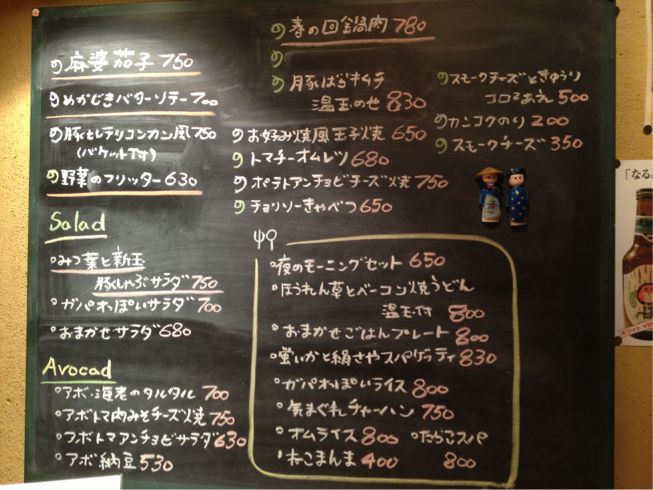 麻婆茄子 750
めかじきバターソテー 700
豚ヒレチリコンカン風 750
(バケット付)
野菜のフリッター 630
Salad
みつ葉と新玉
豚しゃぶサラダ 750
ガパオっぽいサラダ 700
おまかせサラダ 680
Avocad
アボ・海老のタルタル 700
アボトマ肉みそチーズ焼 750
アボトマアンチョビサラダ 630
アボ納豆 530
春の回鍋肉 780
豚ばらキムチ
温玉のせ 830
お好み焼風玉子焼 650
トマチーオムレツ 680
ポテトアンチョビチーズ焼 750
チョリソーきゃべつ 650
スモークチーズときゅうり
コロコロあえ 500
カンコクのり 200
スモークチーズ 350
夜のモーニングセット 650
ほうれん草とベーコン焼うどん
温玉付 800
おまかせごはんプレート 800
蛍いかと絹さやスパゲッティ 830
ガパオっぽいライス 800
気まぐれチャーハン 750
オムライス 800 たらこスパ
ねこまんま 400 800
「なるこ